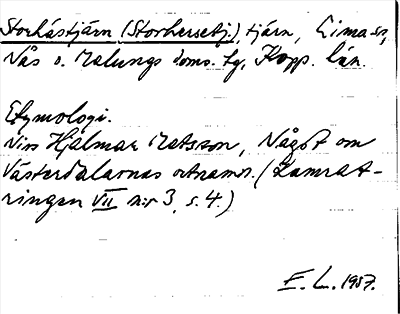 Storhåstjärn (Storhersetj.), tjärn, Lima sn,
Nås o. Malungs doms. tg, Kopp. län.
Etymologi.
Hjalmar Matsson, Något om
Västerdalarnas ortnamn. (Kamrat-
ringen VII n:r 3, s. 4.)
E. L. 1937.